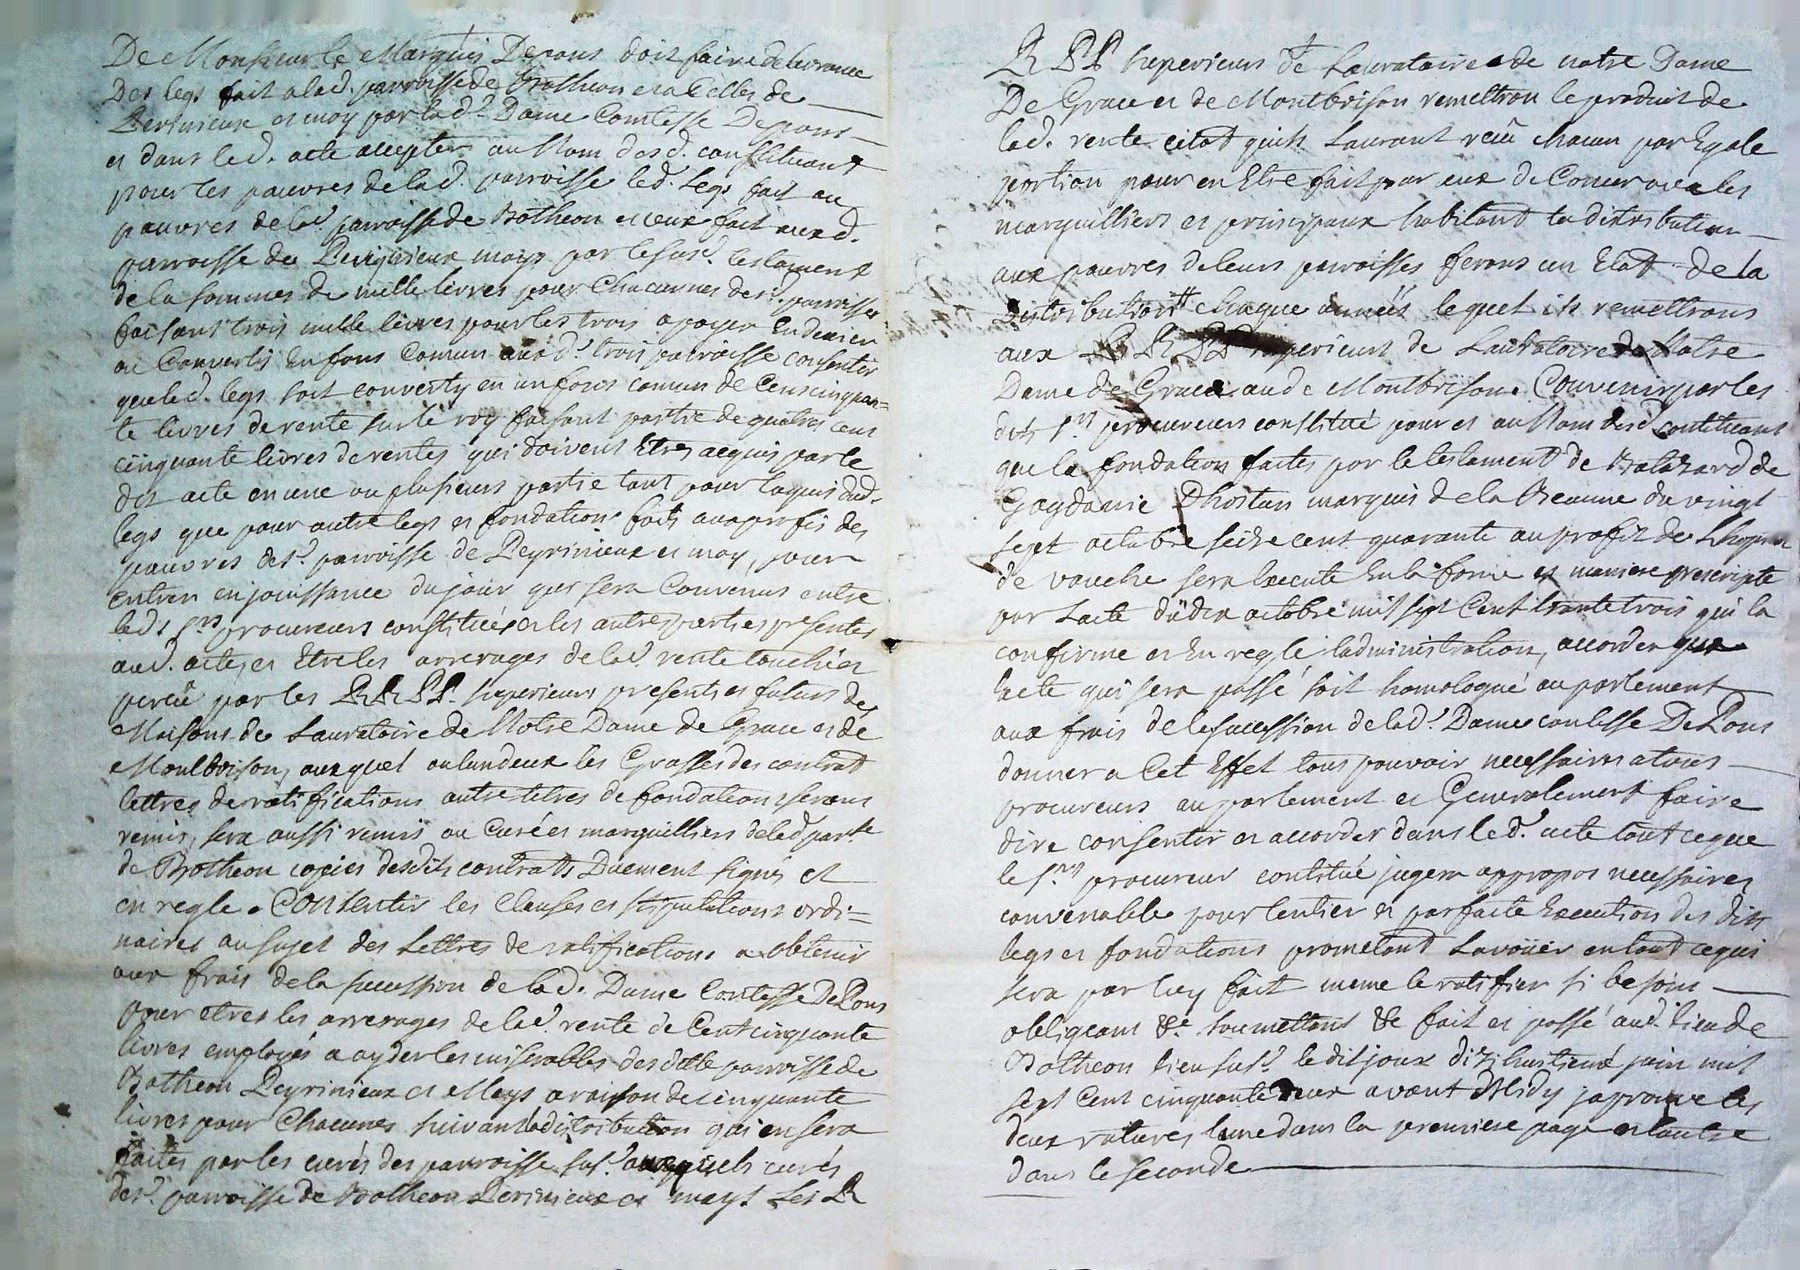 De Monsieur le Marquis Depons doit faire delivrance
Des legs fait a lad. parroisse de Botheon et a Celles de
Perinieux et moy par lad.e Dame Comtesse Depons
et dans led. acte accepter au Nom desd. constituant
pour les pauvres de lad. parroisse led. legs fait au
pauvres de lad. parroisse de Botheon et ceux fait aux d.
parroisse de Perignieux mays par le susd. testament
de la sommes de mille livres pour Chacunnes desd. parroisses
faisant trois mille livres pour les trois a payer En denier
ou Convertis En fons Comun auxd. trois parroisse consentir
que led. legs soit converty en un fons comun de Cens cinquan=
te livres de rente sur le roy faisant partie de quatres cens
cinquante livres de rentes qui doivent Etres acquis par le
dit acte en une ou plusieurs partie tant pour laquis dud.
legs que pour autre legs et fondations faits aux profis des
pauvres desd. parroisse de Peyrinieux et moy, pour
entrer en jouissance du jour qui sera Convenus entre
led. srs procureurs constituées et les autres parties presentes
aud. acte, et Etre les arrerages de lad. rente touchés et
percû par les RR PP. superieurs presents et futurs des
Maisons de Lauratoire de Notre Dame de Grace et de
Montbrison, auxquel en lundeux les Grosses des contrat
lettres de ratifications autre titres de fondations serons
remis, sera aussi remis au Curé et marguilliers de led. parsse
de Botheon copies desdits contrats Duement signés et
en regle. Consentir les Clauses et stipulations ordi=
naires au sujet des Lettres de ratifications a obtenir
aux frais de la succession de lad. Dame Contesse De Pons
pour etres les arrerages de lad. rente de Cent cinquante
livres employés a ayder les miserables desditte parroisse de
Botheon Peyrinieux et Mays a raison de cinquante
livres pour Chacunes suivant la distribution qui en sera
faites par les curés des parroisse susd. auxquels curés
desd. parroisse de Botheon Perinieux et mays Les R
R PP superieurs de Lauratoire de notre Dame
De Grace et de Montbrison remettron le produit de
lad. rente citot quils Lauront reçû chacun par Egale
portion pour en Etre fait par eux de Concer avec les
marguilliers et principaux habitant la distribution
aux pauvres de leurs parroisses feront un Etat de la
distribution chaque années lequel ils remettrons
aux RR PP superieurs de Lauratoire de Notre
Dame de Grace au de Montbrison. Convenir par les
dits srs procureurs constitué pour et au Nom desd. contituant
que la fondation faites par le testament de Baltazard de
Gagdanie Dhostun marquis de la Beaume du vingt
sept octobre seize cent quarante au profit de Lhopital
de vouche sera Executé En la forme et maniere prescripte
par Lacte du dix octobre mil sept Cent trante trois qui la
confirme et En regle Ladministration, accorder que
Lacte qui sera passé soit homologué au parlement
aux frais de la succession de lad. Dame contesse De Pons
donner a Cet Effet tous pouvoir necessaires a tous
procureurs au parlement et Generalement faire
dire consentir et accorder dans led. acte tout ce que
le srs procureur contitué jugera appropos necessaires
convenable pour lentier et parfaite Execution des dits
legs et fondations prometant Lavoüer en tout ce qui
sera par luy fait meme le ratifier si besoins
obligeant &c. soumettant &c fait et passé aud. lieu de
Botheon lieu susd. le dit jour dix huitieme juin mil
sept Cent cinquante deux avant Midy japrouve les
deux ratures lune dans la premiere page et lautre
dans le seconde